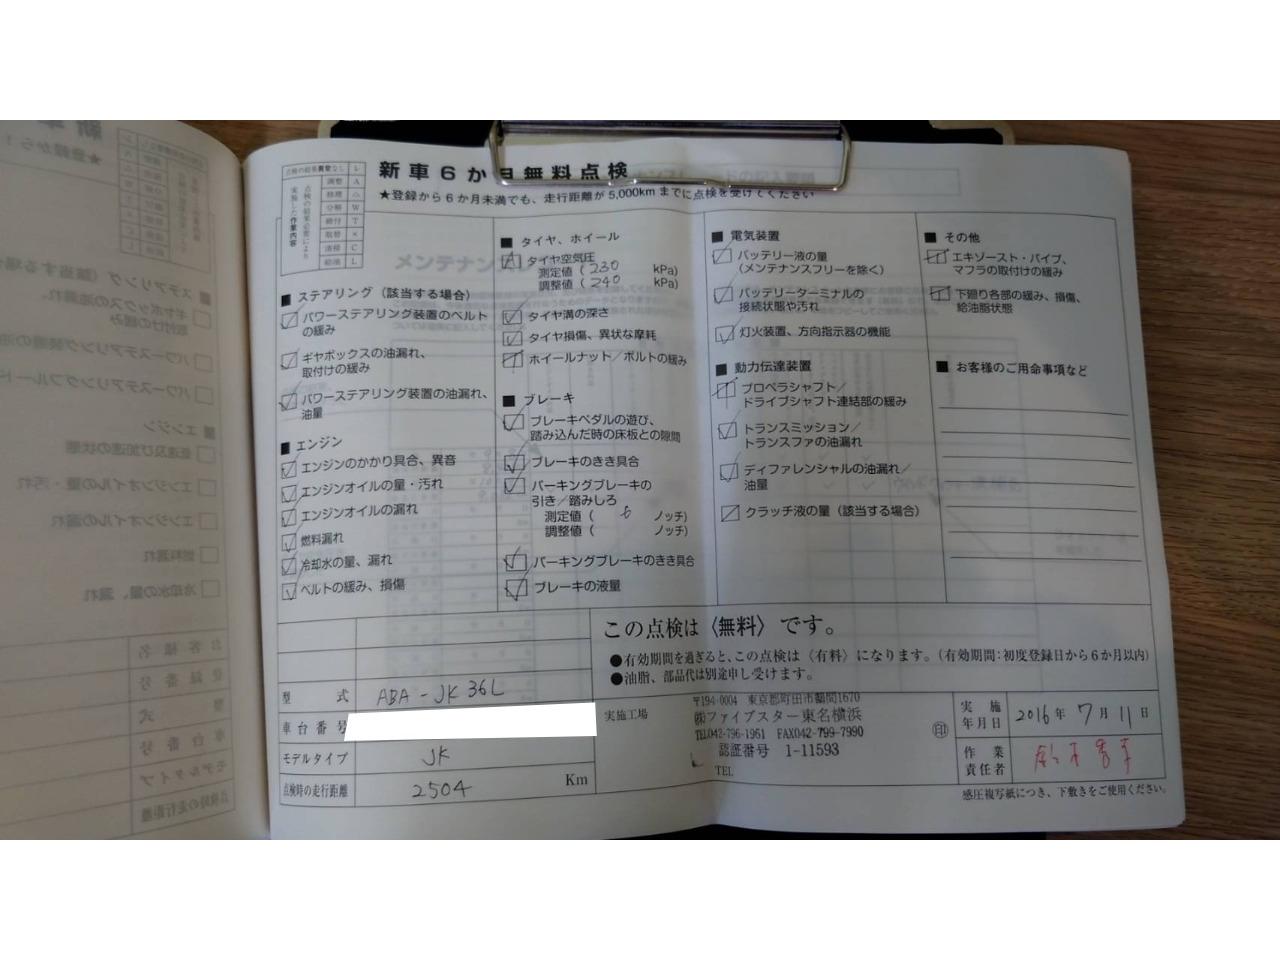 新車6か月無料点検
★登録から6か月未満でも、走行距離が5,000kmまでに点検を受けてください
点検の結果異常なし レ
点検の結果必要により実施した作業内容
調整 A
修理 △
分解 W
締付 T
取替 ×
清掃 C
給油 L
■ ステアリング(該当する場合)
パワーステアリング装置のベルト
の緩み
ギヤボックスの油漏れ、
取付けの緩み
パワーステアリング装置の油漏れ、
油量
■ エンジン
エンジンのかかり具合、異音
エンジンオイルの量・汚れ
エンジンオイルの漏れ
燃料漏れ
冷却水の量、漏れ
ベルトの緩み、損傷
■ タイヤ、ホイール
タイヤ空気圧
測定値(230 kPa)
調整値(240 kPa)
タイヤ溝の深さ
タイヤ損傷、異状な摩耗
ホイールナット/ボルトの緩み
■ ブレーキ
ブレーキペダルの遊び、
踏み込んだ時の床板との隙間
ブレーキのきき具合
パーキングブレーキの
引き/踏みしろ
測定値( 6 ノッチ)
調整値( ノッチ)
パーキングブレーキのきき具合
ブレーキの液量
■ 電気装置
バッテリー液の量
(メンテナンスフリーを除く)
バッテリーターミナルの
接続状態や汚れ
灯火装置、方向指示器の機能
■ 動力伝達装置
プロペラシャフト/
ドライブシャフト連結部の緩み
トランスミッション/
トランスファの油漏れ
ディファレンシャルの油漏れ/
油量
クラッチ液の量(該当する場合)
■ その他
エキゾースト・パイプ、
マフラの取付けの緩み
下廻り各部の緩み、損傷、
給油脂状態
■ お客様のご用命事項など
この点検は〈無料〉です。
●有効期間を過ぎると、この点検は〈有料〉になります。(有効期間:初度登録日から6か月以内)
●油脂、部品代は別途申し受けます。
型式 ABA-JK36L
車台番号
モデルタイプ JK
点検時の走行距離 2504 Km
実施工場
〒194-0004 東京都町田市鶴間1670
㈱ファイブスター東名横浜
TEL042-796-1961 FAX042-799-7990
認証番号 1-11593
TEL
㊞
実施年月日 2016年7月11日
作業責任者
感圧複写紙につき、下敷きをご使用ください。